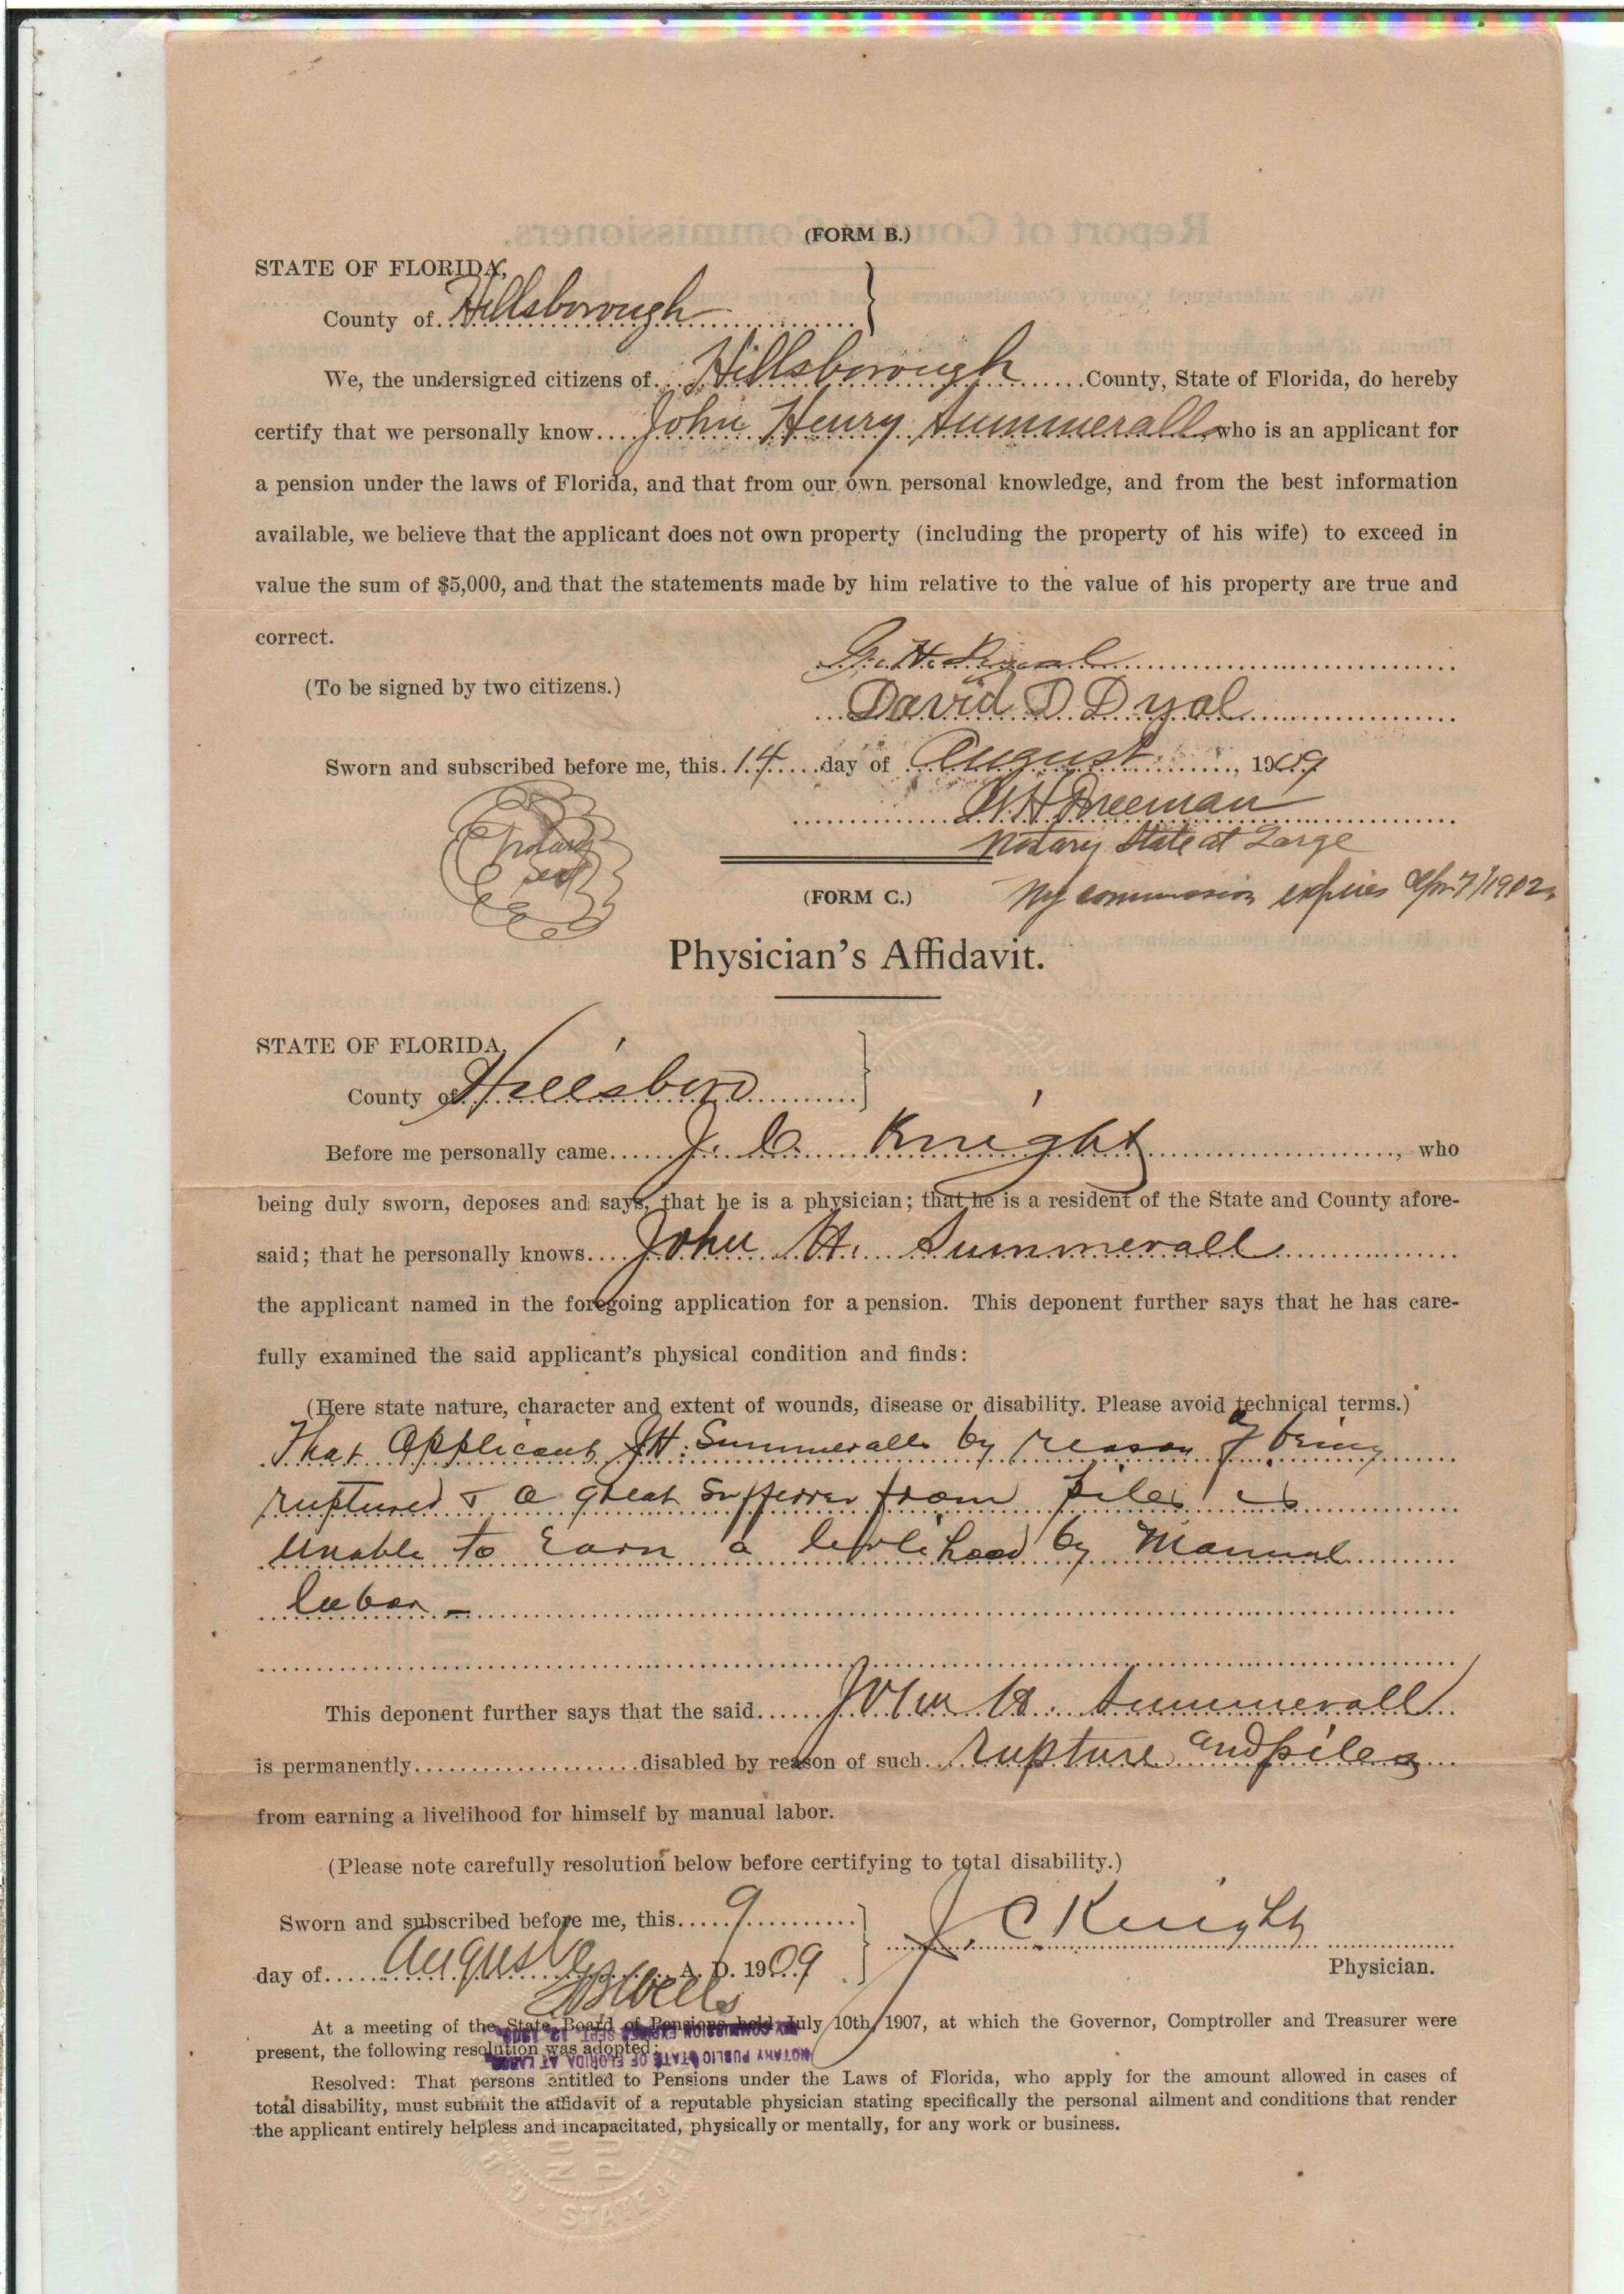 (FORM B.)
STATE OF FLORIDA,
County of Hillsborough
We, the undersigned citizens of Hillsborough County, State of Florida, do hereby
certify that we personally know John Henry Summerall who is an applicant for
a pension under the laws of Florida, and that from our own personal knowledge, and from the best information
available, we believe that the applicant does not own property (including the property of his wife) to exceed in
value the sum of $5,000, and that the statements made by him relative to the value of his property are true and
correct.
(To be signed by two citizens.)
David D Dyal
Sworn and subscribed before me, this 14 day of August, 1909
Notary State at Large
Notary Seal
My commission expires Apr 7/
(FORM C.)
Physician's Affidavit.
STATE OF FLORIDA,
County of Hillsboro
Before me personally came J. C. Knight, who
being duly sworn, deposes and says, that he is a physician; that he is a resident of the State and County afore-
said; that he personally knows John H. Summerall
the applicant named in the foregoing application for a pension. This deponent further says that he has care-
fully examined the said applicant's physical condition and finds:
(Here state nature, character and extent of wounds, disease or disability. Please avoid technical terms.)
That Applicant J H. Summerall by reason of being
ruptured & a great Sufferer from piles is
unable to Earn a livlihood by Manual
labor -
This deponent further says that the said John H. Summerall
is permanently disabled by reason of such rupture and piles
from earning a livelihood for himself by manual labor.
(Please note carefully resolution below before certifying to total disability.)
Sworn and subscribed before me, this 9
J. C Knight
day of August A. D. 1909
Physician.
Wells
At a meeting of the State Board of Pensions held July 10th, 1907, at which the Governor, Comptroller and Treasurer were
present, the following resolution was adopted:
NOTARY PUBLIC STATE OF FLORIDA AT LARGE
MY COMMISSION EXPIRES SEPT.
Resolved: That persons entitled to Pensions under the Laws of Florida, who apply for the amount allowed in cases of
total disability, must submit the affidavit of a reputable physician stating specifically the personal ailment and conditions that render
the applicant entirely helpless and incapacitated, physically or mentally, for any work or business.
STATE OF